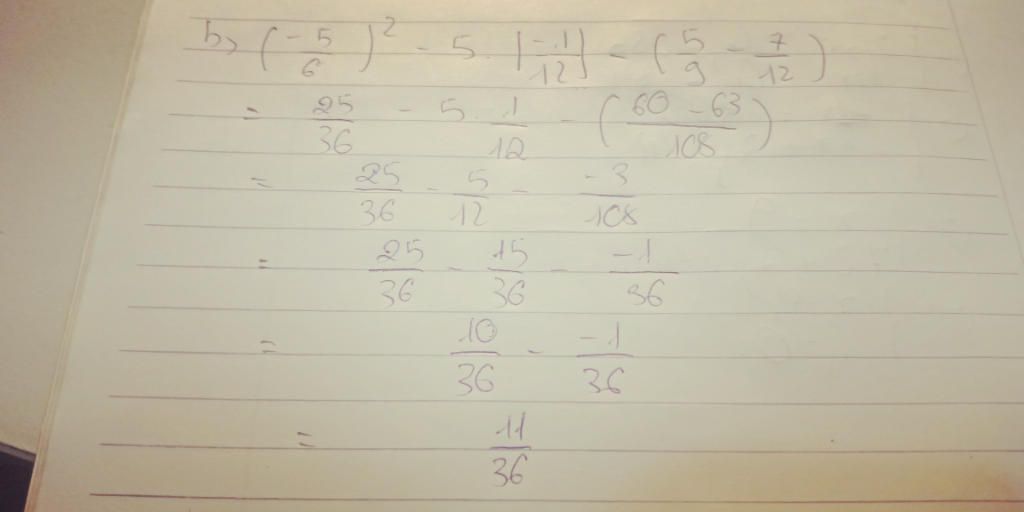 b, (-5/6)² - 5 . |-1/12| - (5/9 - 7/12)
= 25/36 - 5 . 1/12 - (60 - 63/108)
= 25/36 - 5/12 - -3/108
= 25/36 - 15/36 - -1/36
= 10/36 - -1/36
= 11/36